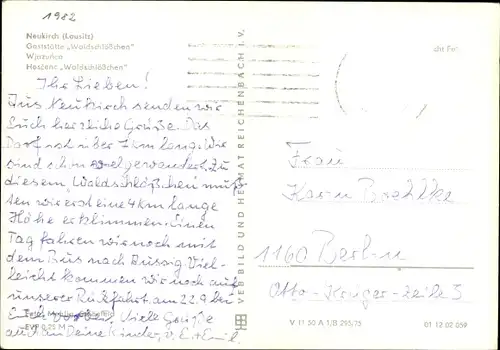 1982
Neukirch (Lausitz)
Gaststätte „Waldschlößchen"
Wjazońca
Hosćenc „Waldschlößchen"
Ihr Lieben!
Aus Neukirch senden wir
Euch herzliche Grüße. Das
Dorf ist über 7 km lang. Wir
sind schon viel gewandert. Zu
diesem „Waldschlößchen muß-
ten wir erst eine 4 km lange
Höhe erklimmen. Einen
Tag fahren wir noch mit
dem Bus nach Aussig. Viel-
leicht kommen wir noch auf
unserer Rückfahrt am 22.9. bei
Euch vorbei. Viele Grüße
auch an Deine Kinder, v. E. + Emil
EVP 0,25 M
VEB BILD UND HEIMAT REICHENBACH I. V.
Frau
Karin
1160 Berlin
Otto-Krüger-Zeile 3
V 11 50 A 1/B 295/75
01 12 02 059